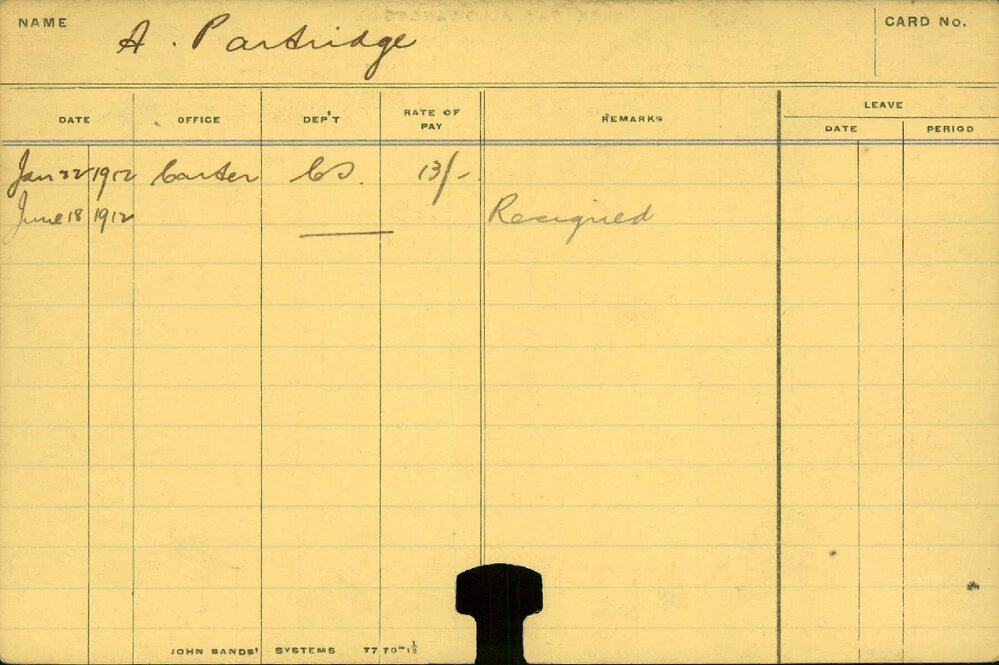 NAME A. Partridge CARD No.
DATE OFFICE DEP'T RATE OF PAY REMARKS LEAVE
DATE PERIOD
Jan 22 1912 Carter CS. 13/-.
June 18 1912 Resigned
JOHN SANDS' SYSTEMS 7770